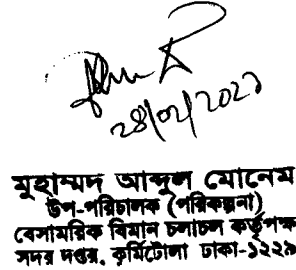 28/02/2021
মুহাম্মদ আব্দুল মোনেম
উপ-পরিচালক (পরিকল্পনা)
বেসামরিক বিমান চলাচল কর্তৃপক্ষ
সদর দপ্তর, কুর্মিটোলা ঢাকা-১২২৯